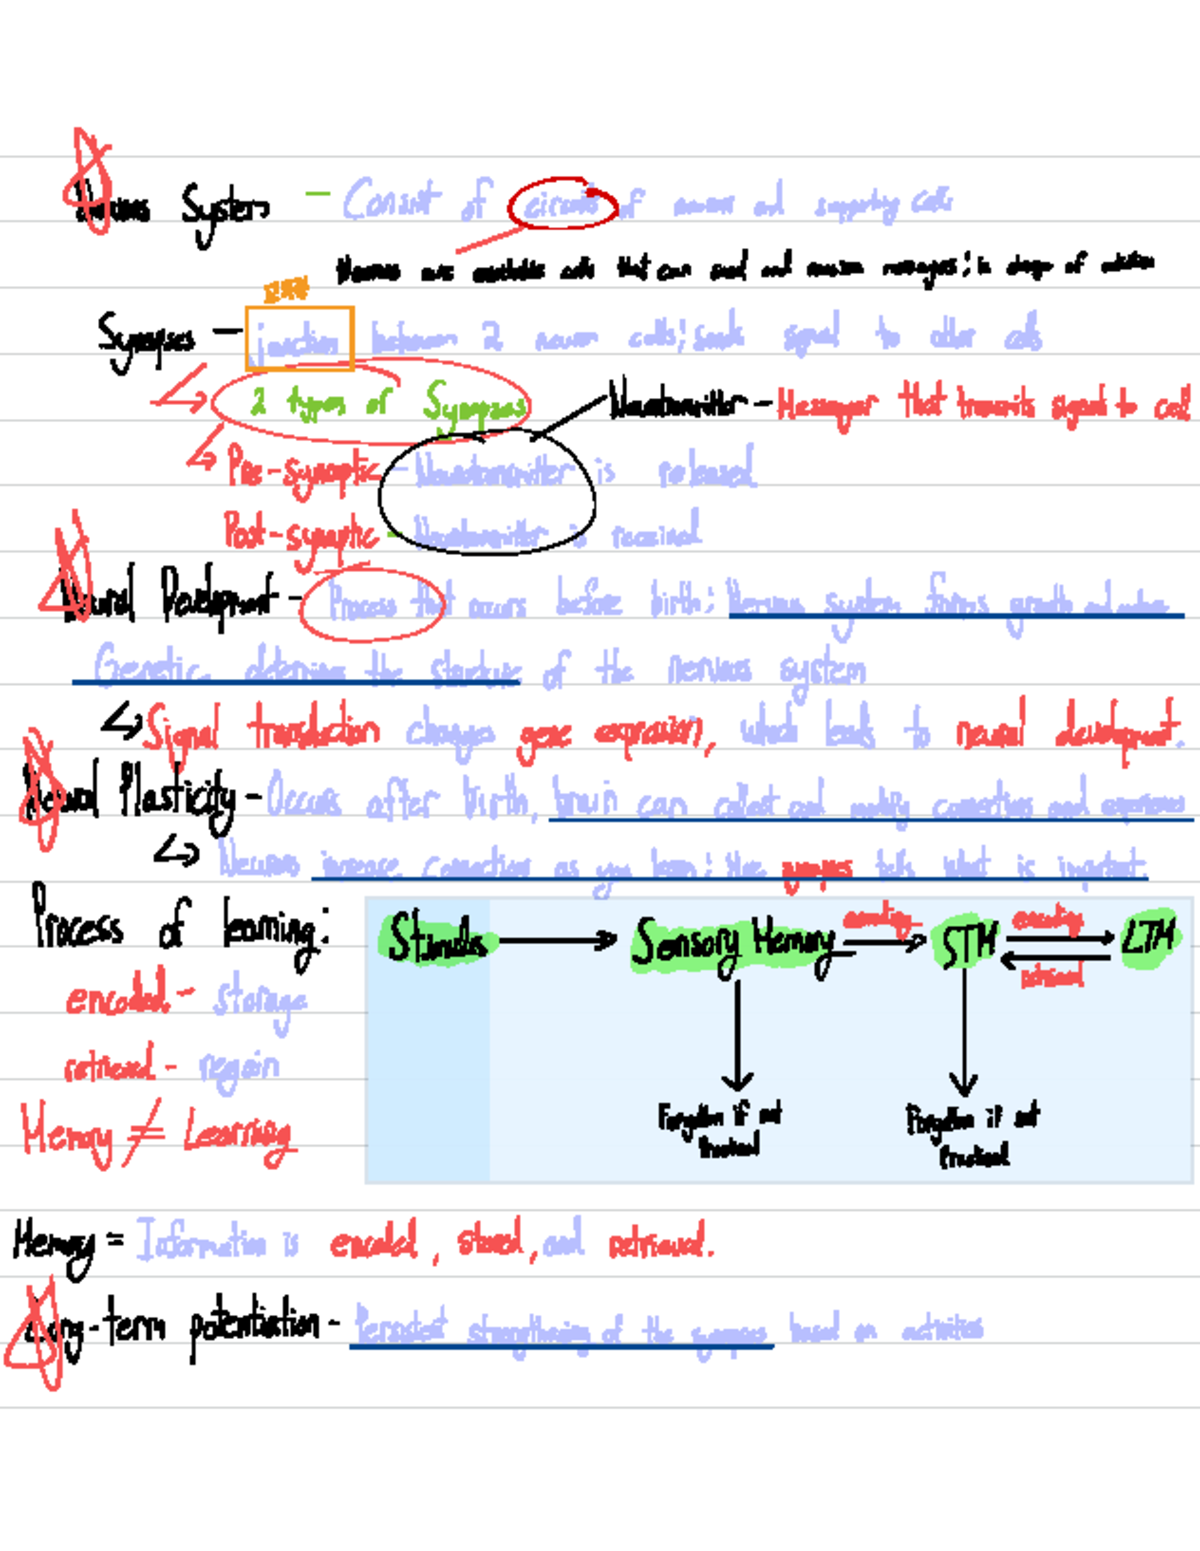 Nervous System – Consist of circuits of neurons and supporting cells
Neurons are excitable cells that can send and receive messages; in charge of
Synapses – junction between 2 neuron cells; sends signal to other cells
2 types of Synapses
Neurotransmitter – Messenger that transmits signal to cell
Pre-synaptic – Neurotransmitter is released
Post-synaptic – Neurotransmitter is received
Neural Development – Process that occurs before birth; Nervous system forms growth and
Genetic determine the structure of the nervous system
↳ Signal transduction changes gene expression, which leads to neural development.
Neural Plasticity – Occurs after birth, brain can collect and modify connections and experiences
↳ Neurons increase connections as you learn; the synapses tells what is important.
Process of learning:
encoded – storage
retrieved – regain
Memory ≠ Learning
Stimulus → Sensory Memory → encoding STM encoding LTM
retrieved
Forgotten if not
Practiced
Forgotten if not
Practiced
Memory = Information is encoded, stored, and retrieval.
Long-term potentiation – Persistent strengthening of the synapses based on activities